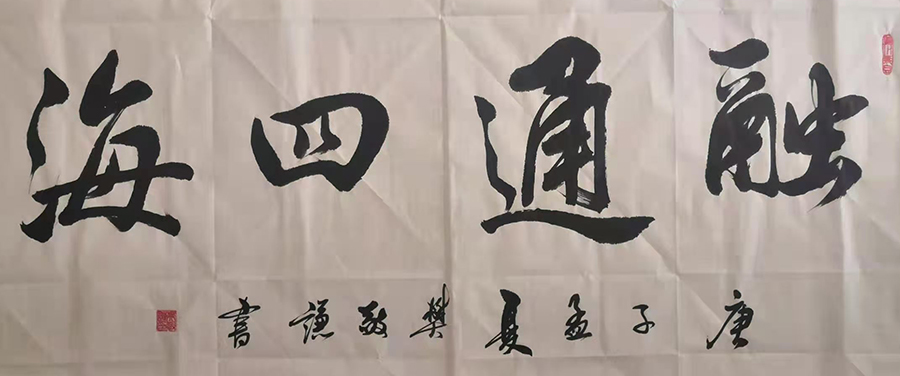 融通四海
庚子孟夏樊敬谦書